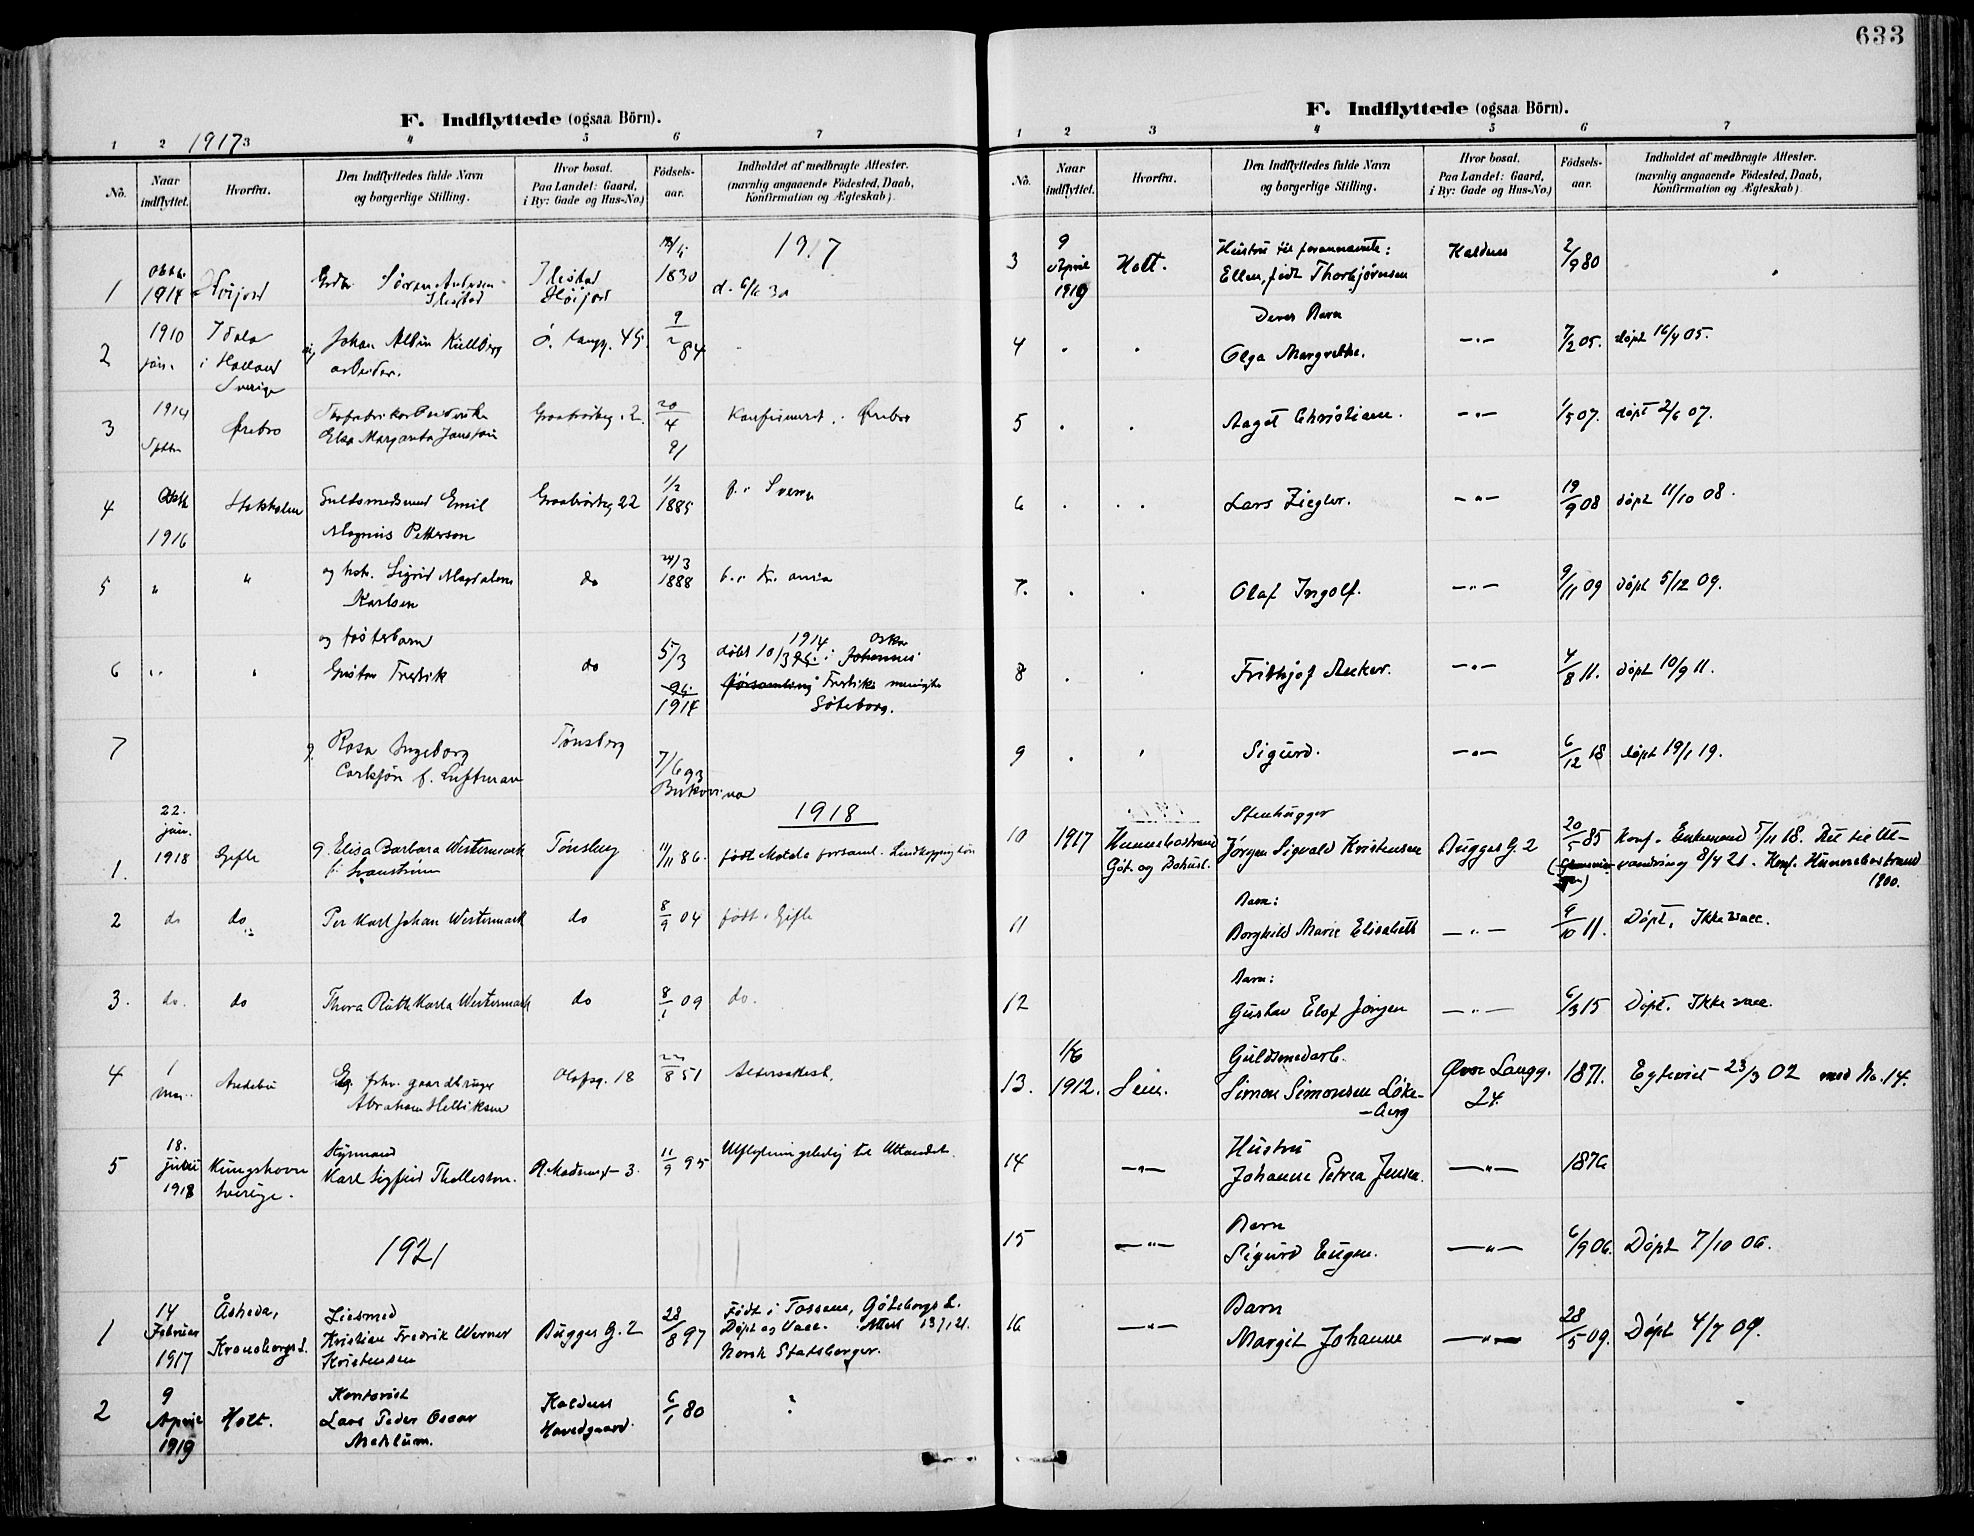 633
F. Indflyttede (ogsaa Börn).
1 2 1917 3 4 5 6 7
No.
Naar indflyttet.
Hvorfra.
Den Indflyttedes fulde Navn og borgerlige Stilling.
Hvor bosat. Paa Landet: Gaard, i By: Gade og Hus-No.)
Födsels-aar.
Indholdet af medbragte Attester. (navnlig angaaende Födested, Daab, Konfirmation og Ægteskab)
1917
1 1914 Höijord Sören Andersen Ilestad Ilestad Höijord 1830
2 1910 jan. i Halland Sverige Johan Albin Kullberg arbeider. Ö. Langg. 45 9/2 84
3 1914 Septbr Ørebro Elsa Margareta Jansson 20/4 91 Konfirmeret i Ørebro
4 Oktb 1916 Stokholm Guldsmedsvend Emil Magnus Petterson Graabrödreg 22 1/2 1885 f. i Sverige
5 " " og hstr. Sigrid Magdalene Karlsen do 24/3 1888
6 " " og fosterbarn Gustav Fredrik do 5/3 1914 döbt 10/3 1914 i Oskar Fredriks menighet Göteborg.
7 g. Rosa Ingeborg Carlsjön f. Luftman Tønsberg 7/6 93 Bukovina
1918
1. 22. jan. 1918 Gefle g. Elisa Barbara Westermark f. Svanström Tønsberg 14/11 86. födt Motala forsaml. Linköping län
2 do do Per Karl Johan Westermark do 8/9 04 födt i Gefle
3. do. do Thora Ruth Karla Westermark do 8/1 09 do.
4 1 Andebu Eg. fhv. gaardbruger Abraham Helliksen Olafsg. 18 22/8 51
5 18. juni 1918 Kungshavn Sverige. Styrmand Karl Sigfrid Thollesson. 11/9 95 Udflytningsbevis til Utlandet.
1921
1 14 Februar 1917 Åsheda, Kronobergs L. Liesmed Kristian Fredrik Werner Kristensen Bugges G. 2 28/8 97 Födt i Tossene, Göteborgs L. Döpt og Vacc. Attest 13/1 21. Norsk Statsborger.
2 9 April 1919 Holt. Kontorist Lars Peder Oscar Mehlum. Kaldnes Hovedgaard. 6/1 80 "
F. Indflyttede (ogsaa Börn).
1 2 3 4 5 6 7
No.
Naar indflyttet.
Hvorfra.
Den Indflyttedes fulde Navn og borgerlige Stilling.
Hvor bosat. Paa Landet: Gaard, i By: Gade og Hus-No.)
Födsels-aar.
Indholdet af medbragte Attester. (navnlig angaaende Födested, Daab, Konfirmation og Ægteskab)
3 9 April 1919 Holt. Hustru til forannævnte: Ellen, födt Thorbjörnsen Kaldnes 2/9 80
Deres Barn
4 " " Olga Margrethe. —"— 7/2 05. döpt 16/4 05.
5 " " Aagot Christiane. —"— 1/5 07. döpt 2/6 07.
6 " " Lars Ziegler. —"— 19/9 08 döpt 11/10 08.
7. " " Olaf Ingolf. —"— 9/11 09 döpt 5/12 09.
8 " " Frithjof Anker. —"— 4/8 11. döpt 10/9 11.
9 " " Sigurd. —"— 6/12 18 döpt 19/1 19.
10 1917 Hunnebostrand Göt. og Bohusl. Stenhugger Jörgen Sigvald Kristensen Bugges G. 2 20/5 85 Konf. Enkemand 5/11 18. Ret til Utvandring 8/4 21. Konf. Hunnebostrand 1900.
11 Barn: Borghild Marie Elisabeth —"— 9/10 11. Döpt. Ikke vacc.
12 Barn: Gustav Elof Jörgen —"— 6/3 15 Döpt. Ikke vacc.
13. 1/6 1912. Sem. Guldsmedarb. Simon Simonsen Lökeberg Øvre Langg. 24. 1871. Egteviet 23/3 02 med No. 14.
14 —"— Hustru Johanne Petrea Jensen. —"— 1876
15 —"— Barn Sigurd Eugen. —"— 6/9 06. Döpt 7/10 06.
16 —"— Barn Margit Johanne —"— 28/5 09. Döpt 4/7 09.